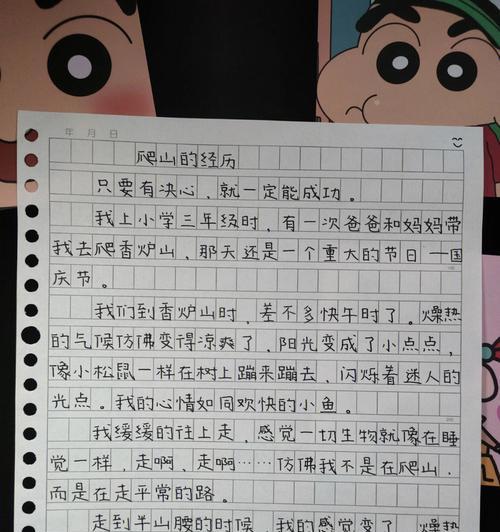 年 月 日
爬山的经历
只要有决心，就一定能成功。
我上小学三年级时，有一次爸爸和妈妈带
我去爬香炉山，那天还是一个重大的节日—国
庆节。
我们到香炉山时，差不多快午时了。燥热
的气候仿佛变得凉爽了，阳光变成了小点点，
像小松鼠一样在树上蹦来蹦去，闪烁着迷人的
光点。我的心情如同欢快的小鱼。
我缓缓的往上走，感觉一切生物就像在睡
觉一样，走啊，走啊……仿佛我不是在爬山，
而是在走平常的路。
走到半山腰的时候，我的感觉变了，燥热